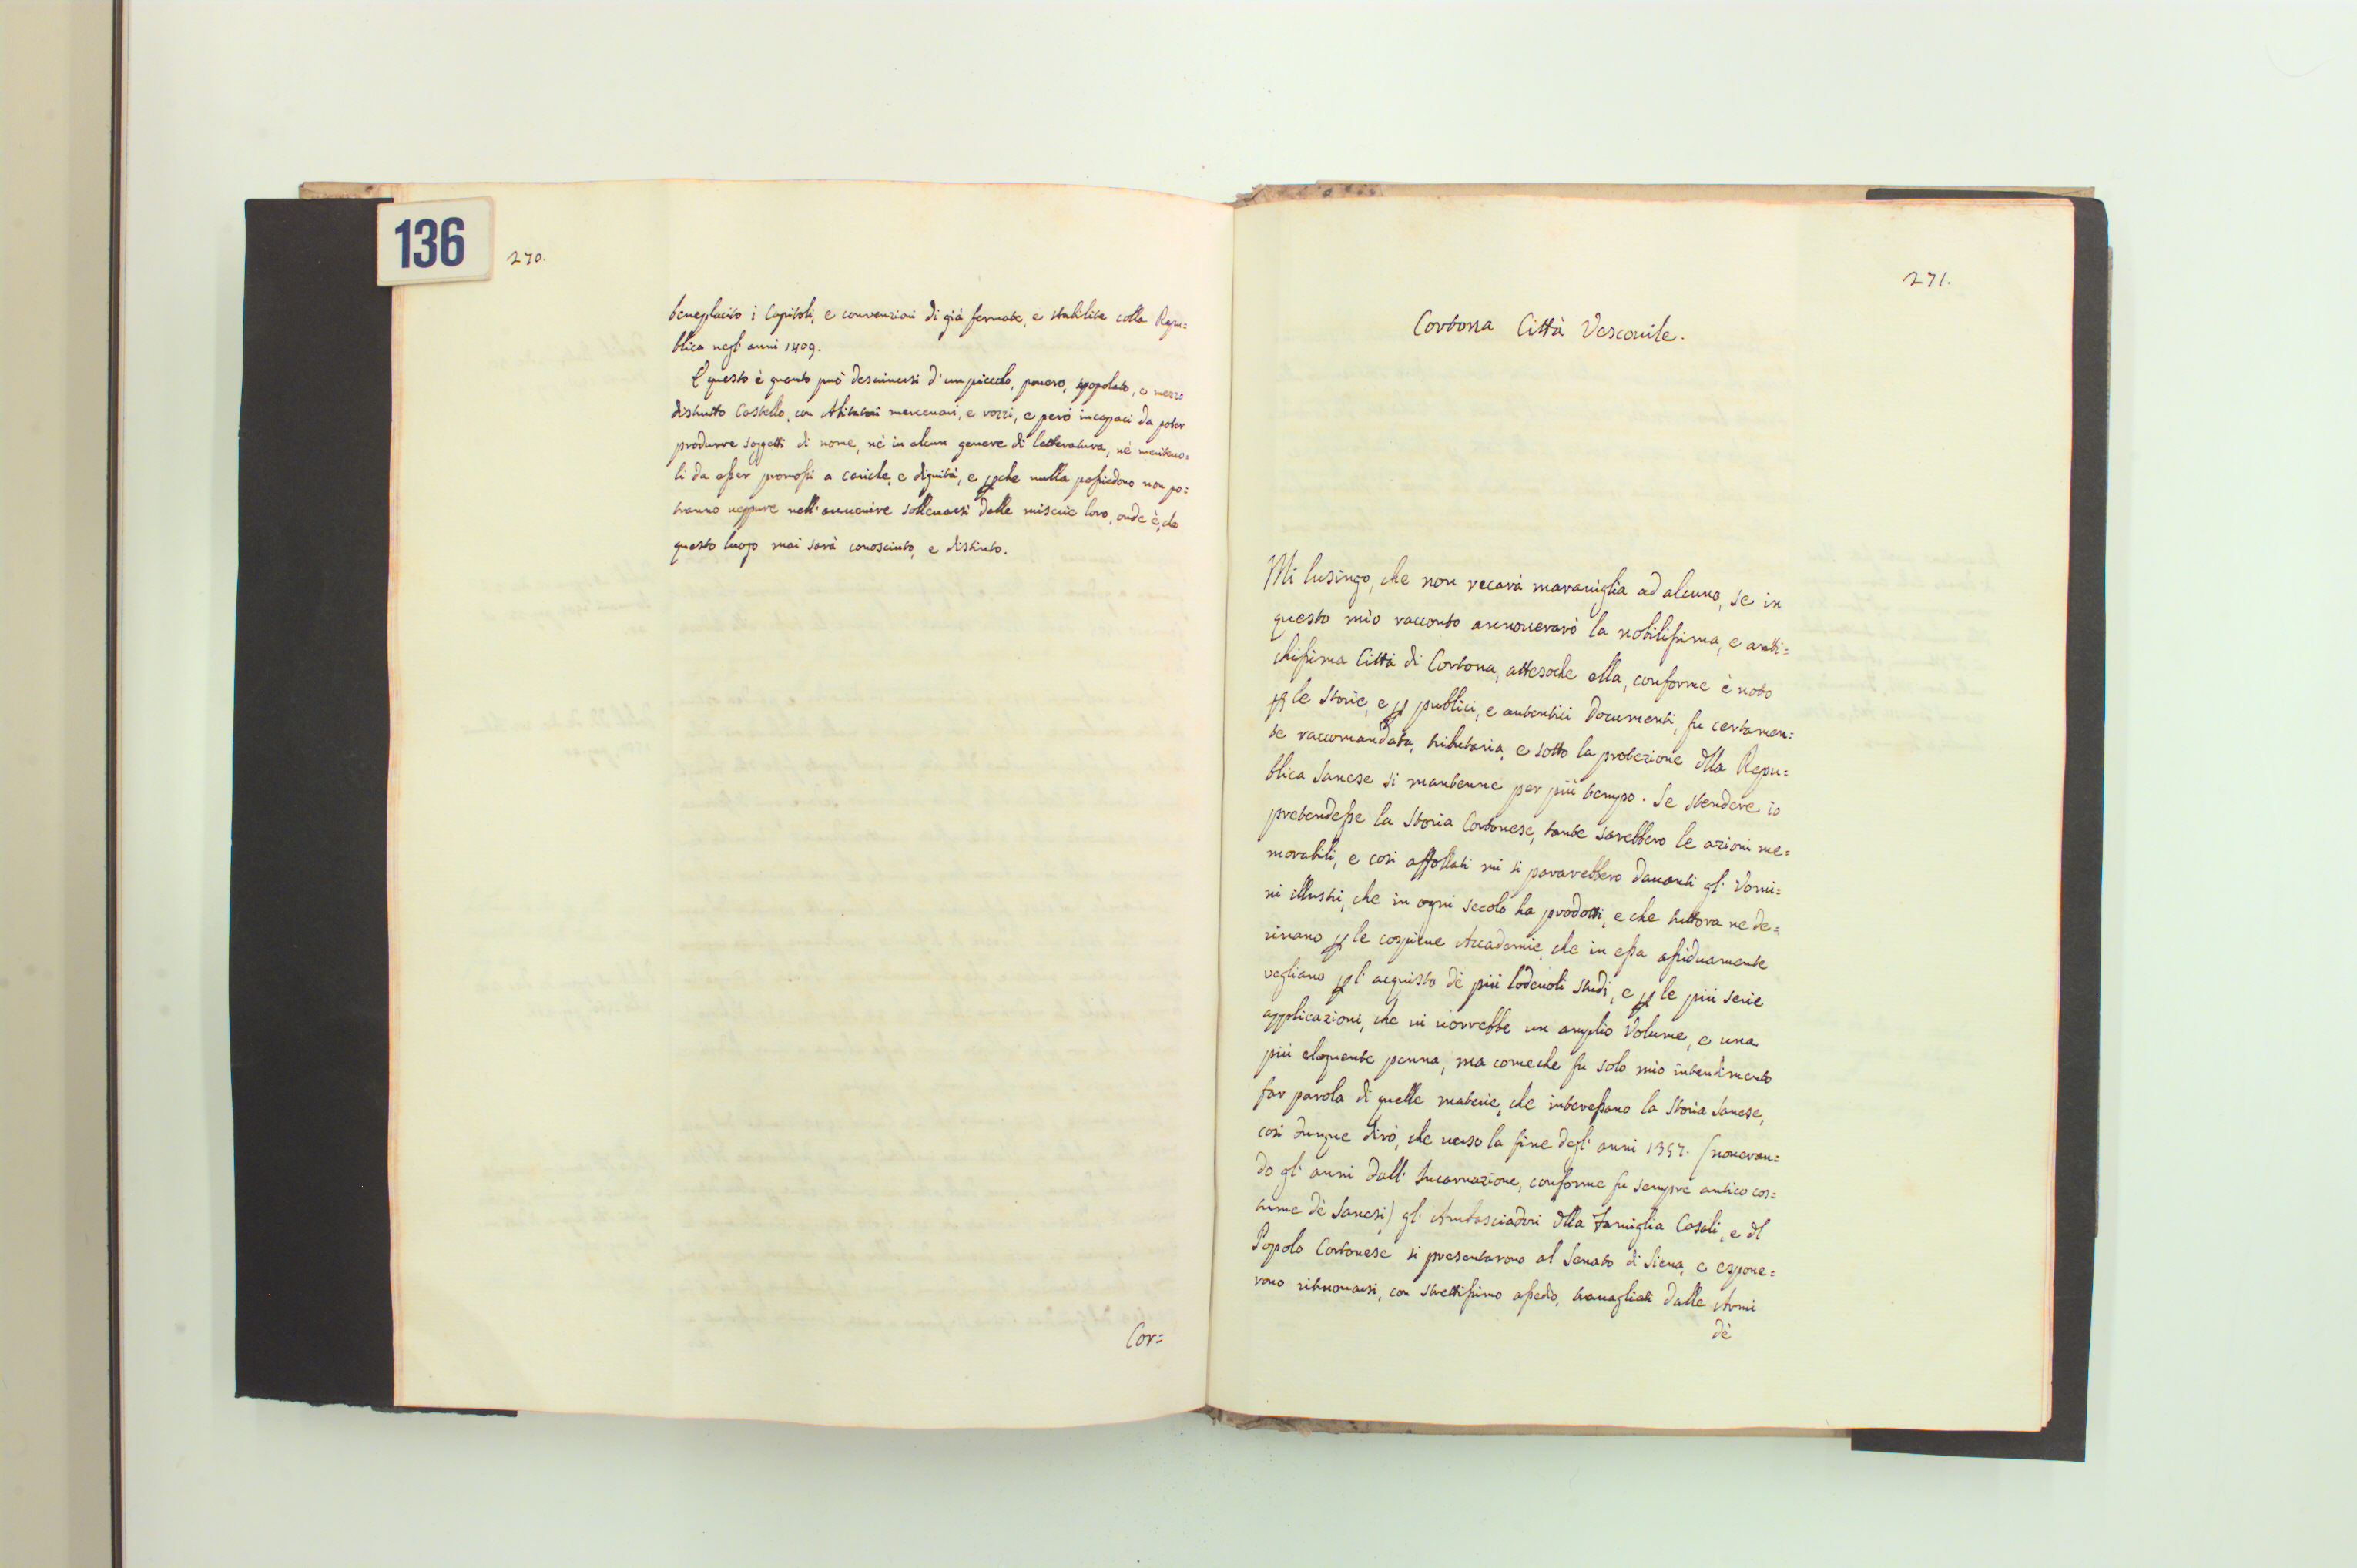 136
270.
beneplacito i Capitoli, e convenzioni di già fermate, e stabilite colla Repu=
blica negl' anni 1409.
E questo è quanto può descriversi d'un piccolo, povero, spopolato, e mezzo
distrutto Castello, con Abitatori mercenari, e rozzi, e però incapaci da poter
produrre soggetti di nome, né in alcun genere di letteratura, né meritevo=
li da esser promossi a cariche, e dignità, e perche nulla possiedono non po=
tranno neppure nell'avvenire sollevarsi dalle miserie loro, onde è, che
questo luogo mai sarà conosciuto, e distinto.
Cor=
271.
Cortona Città Vescovile.
Mi lusingo, che non recarà maraviglia ad alcuno, se in
questo mio racconto annoverarò la nobilissima, e anti=
chissima Città di Cortona, attesoche ella, conforme è noto
per le Storie, e per publici, e autentici Documenti, fu certamen=
te raccomandata, tributaria, e sotto la protezione della Repu=
blica Sanese si mantenne per più tempo. Se stendere io
pretendesse la Storia Cortonese, tante sarebbero le azioni me=
morabili, e così affollati mi si pararebbero davanti gl' Uomi=
ni illustri, che in ogni secolo ha prodotti, e che tuttora ne de=
rivano per le cospicue Accademie, che in essa assiduamente
vegliano per l' acquisto de più lodevoli studi, e per le più serie
applicazioni, che vi vorrebbe un amplio Volume, e una
più eloquente penna, ma comeche fu solo mio intendimento
far parola di quelle materie, che interessano la Storia Sanese,
così dunque dirò, che verso la fine degl' anni 1357. (noveran=
do gl' anni dall' Incarnazione, conforme fu sempre antico cos=
tume dè Sanesi) gl' Ambasciadori della Famiglia Casali, e del
Popolo Cortonese si presentarono al Senato di Siena, e espone=
rono ritrovarsi, con strettissimo assedio, travagliati dalle Armi
dè